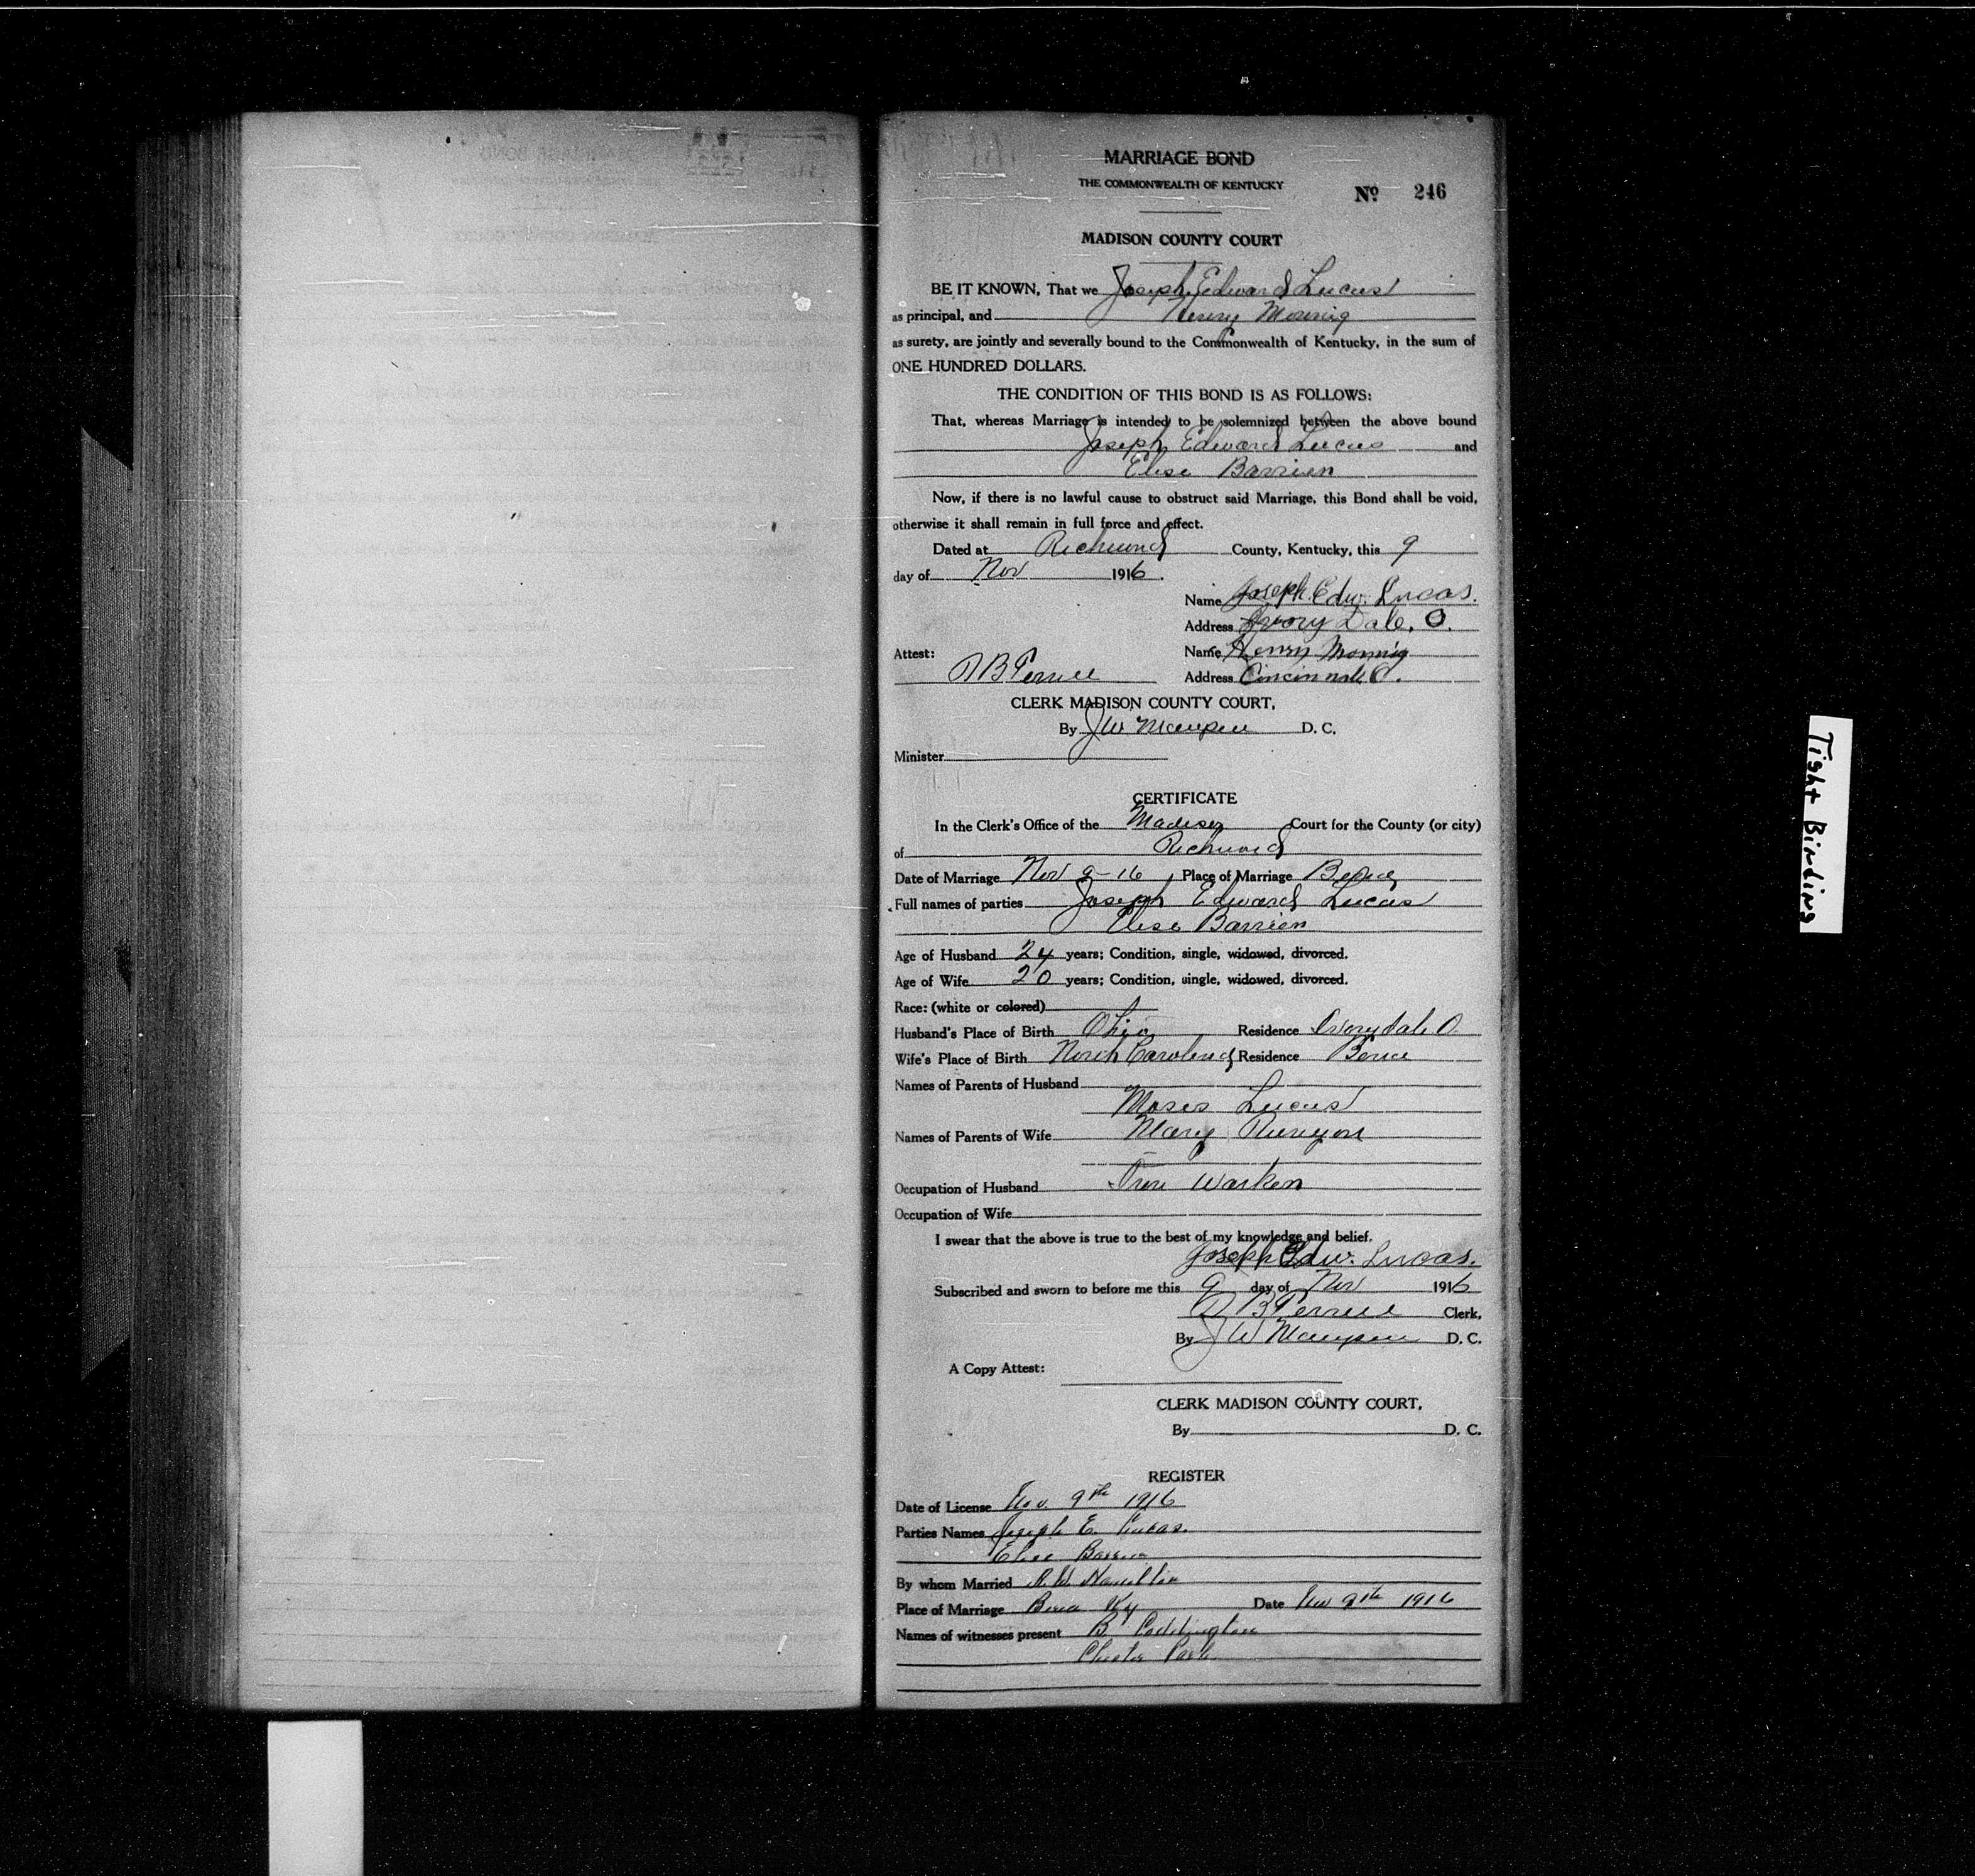 MARRIAGE BOND
THE COMMONWEALTH OF KENTUCKY
No 246
MADISON COUNTY COURT
BE IT KNOWN, That we Joseph Edward Lucas
as principal, and Henry Monnig
as surety, are jointly and severally bound to the Commonwealth of Kentucky, in the sum of
ONE HUNDRED DOLLARS.
THE CONDITION OF THIS BOND IS AS FOLLOWS:
That, whereas Marriage is intended to be solemnized between the above bound
Joseph Edward Lucas and
Elise Barrien
Now, if there is no lawful cause to obstruct said Marriage, this Bond shall be void,
otherwise it shall remain in full force and effect.
Dated at Richmond County, Kentucky, this 9
day of Nov 1916.
Name Joseph Edw. Lucas.
Address Ivory Dale, O.
Attest: Name Henry Monnig
R B Terrill Address Cincinnati O.
CLERK MADISON COUNTY COURT,
By J W Maupin D. C.
Minister
CERTIFICATE
In the Clerk's Office of the Madison Court for the County (or city)
of Richmond
Date of Marriage Nov 9-16 Place of Marriage Berea
Full names of parties Joseph Edward Lucas
Elise Barrien
Age of Husband 24 years; Condition, single, widowed, divorced.
Age of Wife 20 years; Condition, single, widowed, divorced.
Race: (white or colored)
Husband's Place of Birth Ohio Residence Ivorydale O.
Wife's Place of Birth North Carolina Residence Berea
Names of Parents of Husband
Moses Lucas
Names of Parents of Wife Mary Runyon
Occupation of Husband Iron Worker
Occupation of Wife
I swear that the above is true to the best of my knowledge and belief.
Joseph Edw. Lucas.
Subscribed and sworn to before me this 9 day of Nov 1916
R B Terrill Clerk,
By J W Maupin D. C.
A Copy Attest:
CLERK MADISON COUNTY COURT,
By D. C.
REGISTER
Date of License Nov. 9th 1916
Parties Names Joseph E. Lucas.
Elise Barrien
By whom Married Hamilton
Place of Marriage Berea Ky Date Nov 9th 1916
Names of witnesses present B. Coddington
Chester Park
Tight Binding